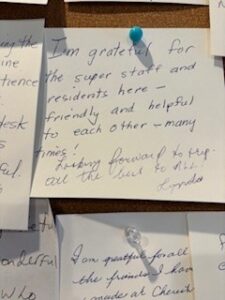 I'm grateful for
the super staff and
residents here –
friendly and helpful
to each other – many
times!
Looking forward to
all the best to
Lynda
ing the
ine
tience
desk
ful.
wonderful
who
I am greatful for all
the friends I have
made at